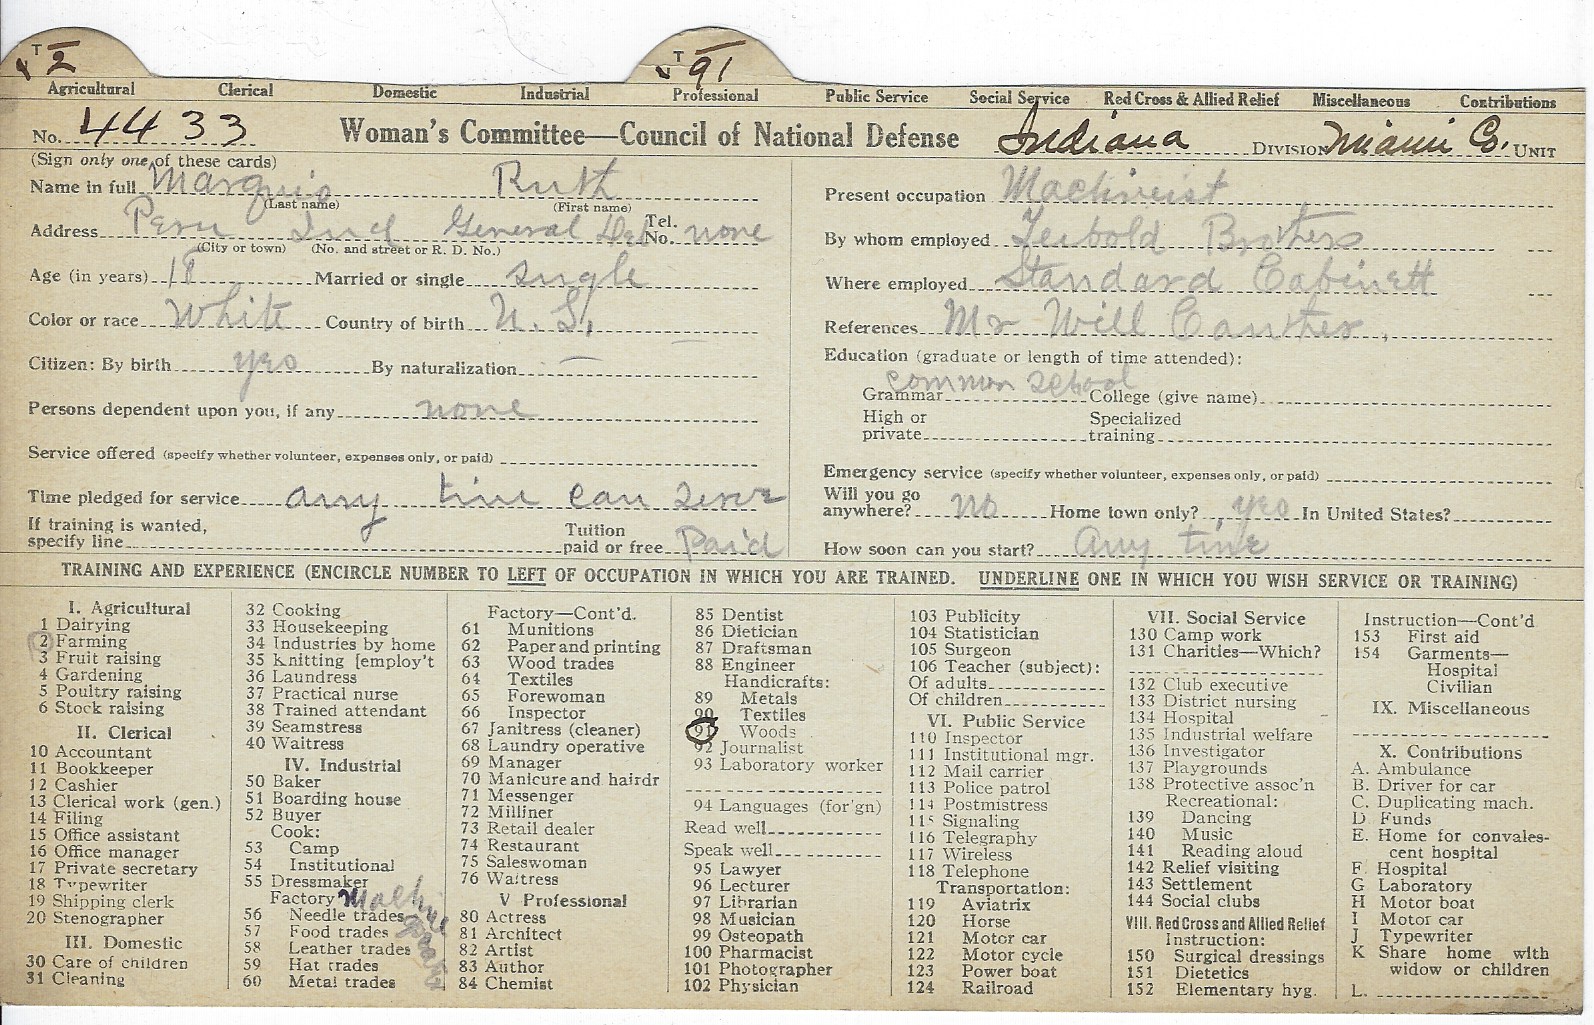 T 2 T 91
Agricultural Clerical Domestic Industrial Professional Public Service Social Service Red Cross & Allied Relief Miscellaneous Contributions
No. 4433 Woman's Committee—Council of National Defense Indiana Division Miami Co. Unit
(Sign only one of these cards)
Name in full Marquis Ruth
(Last name) (First name)
Address Peru Ind General Del Tel. No. none
(City or town) (No. and street or R. D. No.)
Age (in years) 18 Married or single single
Color or race White Country of birth U. S.
Citizen: By birth yes By naturalization —
Persons dependent upon you, if any none
Service offered (specify whether volunteer, expenses only, or paid)
Time pledged for service any time can serve
If training is wanted,
specify line Tuition paid or free Paid
Present occupation Machineist
By whom employed Brothers
Where employed Standard Cabinett
References Mr Will
Education (graduate or length of time attended):
common school
Grammar College (give name)
High or private Specialized training
Emergency service (specify whether volunteer, expenses only, or paid)
Will you go
anywhere? no Home town only? yes In United States?
How soon can you start? Any time
TRAINING AND EXPERIENCE (ENCIRCLE NUMBER TO LEFT OF OCCUPATION IN WHICH YOU ARE TRAINED. UNDERLINE ONE IN WHICH YOU WISH SERVICE OR TRAINING)
I. Agricultural
1 Dairying
2 Farming
3 Fruit raising
4 Gardening
5 Poultry raising
6 Stock raising
II. Clerical
10 Accountant
11 Bookkeeper
12 Cashier
13 Clerical work (gen.)
14 Filing
15 Office assistant
16 Office manager
17 Private secretary
18 Typewriter
19 Shipping clerk
20 Stenographer
III. Domestic
30 Care of children
31 Cleaning
32 Cooking
33 Housekeeping
34 Industries by home
35 Knitting [employ't
36 Laundress
37 Practical nurse
38 Trained attendant
39 Seamstress
40 Waitress
IV. Industrial
50 Baker
51 Boarding house
52 Buyer
Cook:
53 Camp
54 Institutional
55 Dressmaker
Factory Machine
56 Needle trades
57 Food trades
58 Leather trades
59 Hat trades
60 Metal trades
Factory—Cont'd.
61 Munitions
62 Paper and printing
63 Wood trades
64 Textiles
65 Forewoman
66 Inspector
67 Janitress (cleaner)
68 Laundry operative
69 Manager
70 Manicure and hairdr
71 Messenger
72 Milliner
73 Retail dealer
74 Restaurant
75 Saleswoman
76 Waitress
V Professional
80 Actress
81 Architect
82 Artist
83 Author
84 Chemist
85 Dentist
86 Dietician
87 Draftsman
88 Engineer
Handicrafts:
89 Metals
90 Textiles
91 Woods
92 Journalist
93 Laboratory worker
94 Languages (for'gn)
Read well
Speak well
95 Lawyer
96 Lecturer
97 Librarian
98 Musician
99 Osteopath
100 Pharmacist
101 Photographer
102 Physician
103 Publicity
104 Statistician
105 Surgeon
106 Teacher (subject):
Of adults
Of children
VI. Public Service
110 Inspector
111 Institutional mgr.
112 Mail carrier
113 Police patrol
114 Postmistress
115 Signaling
116 Telegraphy
117 Wireless
118 Telephone
Transportation:
119 Aviatrix
120 Horse
121 Motor car
122 Motor cycle
123 Power boat
124 Railroad
VII. Social Service
130 Camp work
131 Charities—Which?
132 Club executive
133 District nursing
134 Hospital
135 Industrial welfare
136 Investigator
137 Playgrounds
138 Protective assoc'n
Recreational:
139 Dancing
140 Music
141 Reading aloud
142 Relief visiting
143 Settlement
144 Social clubs
VIII. Red Cross and Allied Relief
Instruction:
150 Surgical dressings
151 Dietetics
152 Elementary hyg.
Instruction—Cont'd
153 First aid
154 Garments—
Hospital
Civilian
IX. Miscellaneous
X. Contributions
A. Ambulance
B. Driver for car
C. Duplicating mach.
D. Funds
E. Home for convales-
cent hospital
F. Hospital
G Laboratory
H Motor boat
I Motor car
J Typewriter
K Share home with
widow or children
L.